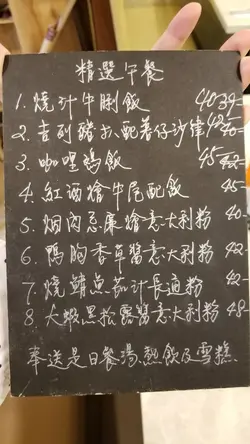 精選午餐
1. 燒汁牛脷飯 40 39-
2. 吉列豬扒配薯仔沙律 42 40-
3. 咖喱鷄飯 45 42-
4. 紅酒燴牛尾配飯 45-
5. 烟肉忌廉燴意大利粉 40-
6. 鴨胸香草醬意大利粉 42-
7. 燒鯖魚茄汁長通粉 42-
8. 大蝦黑松露醬意大利粉 48-
奉送是日餐湯,熱飲及雪糕